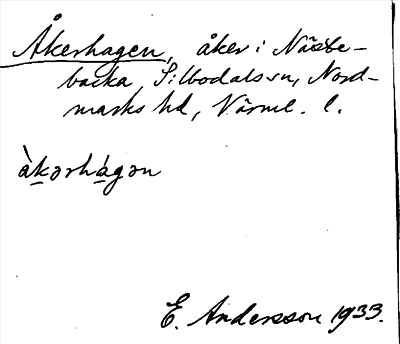 Åkerhagen, åker i Näste-
backa, Silbodals sn, Nord-
marks hd, Värml. l.
àkərhágən
E. Andersson 1933.